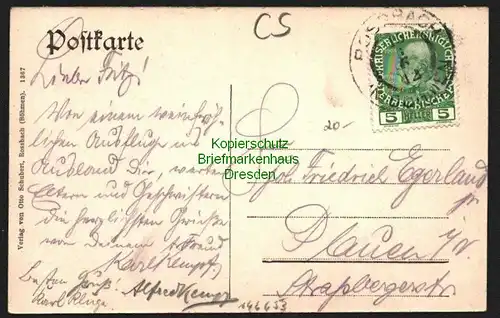 Postkarte
CS
ROSSBACH
KAISERLICHE KÖNIGLICHE
ÖSTERREICHISCHE
5 HELLER 5
Lieber Fritz!
Von einem
lichen Ausflug
Dir, werten
Eltern und Geschwistern
die herzlichsten Grüße
von deinem Freund
Karl Kempf
Besten Gruß! Alfred Kempf
Karl Kluge
20-
Kopierschutz
Briefmarkenhaus
Dresden
Friedrich Egerland
Plauen i/V.
Straßbergerstr
146653
Verlag von Otto Schubert, Rossbach (Böhmen). 1367